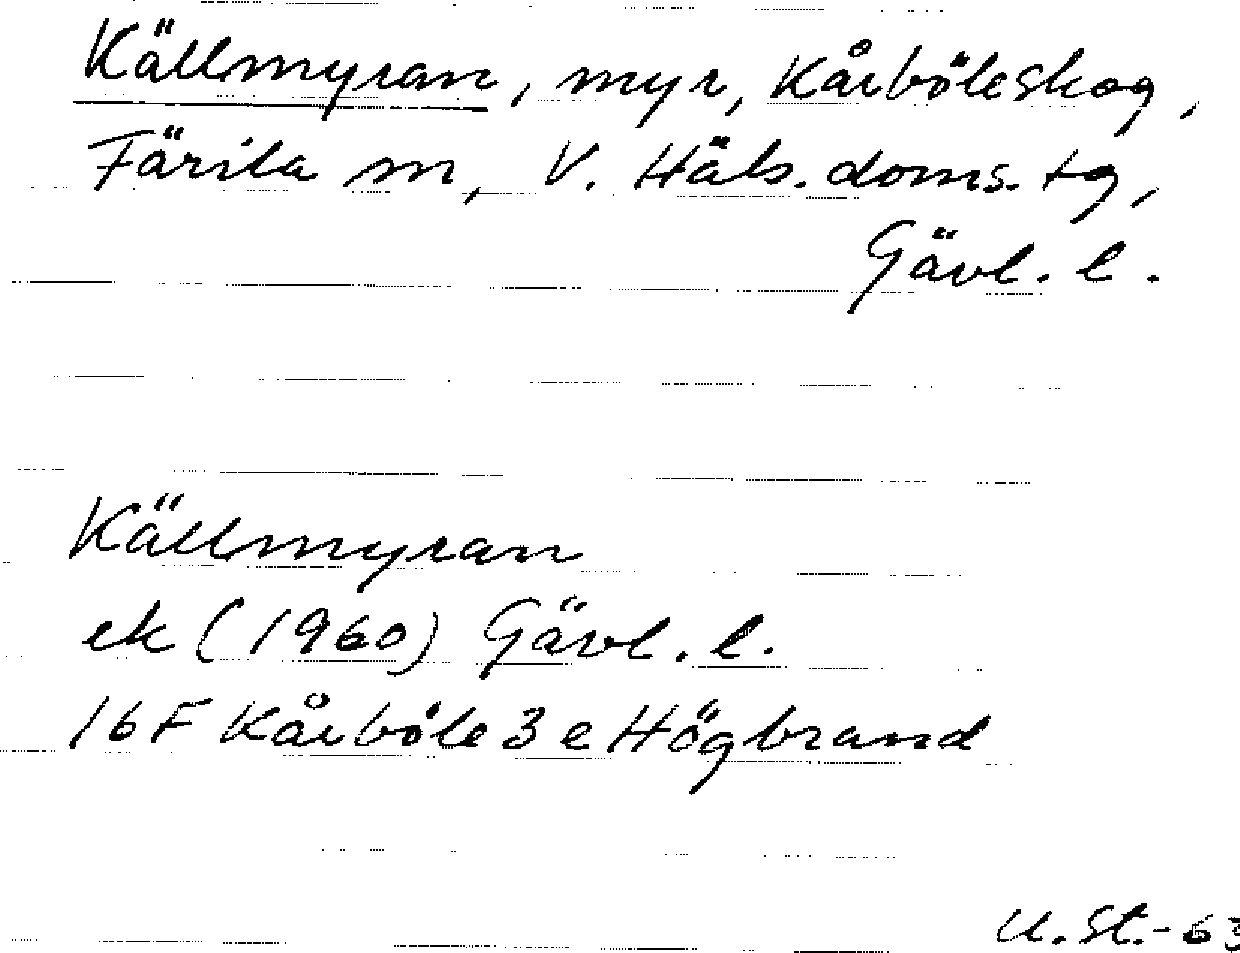 Källmyran, myr, Kårböleskog,
Färila sn, V. Häls. doms. tg,
Gävl. l.
Källmyran
ek (1960) Gävl. l.
16F Kårböle 3 e Högbrand
U. St. - 63